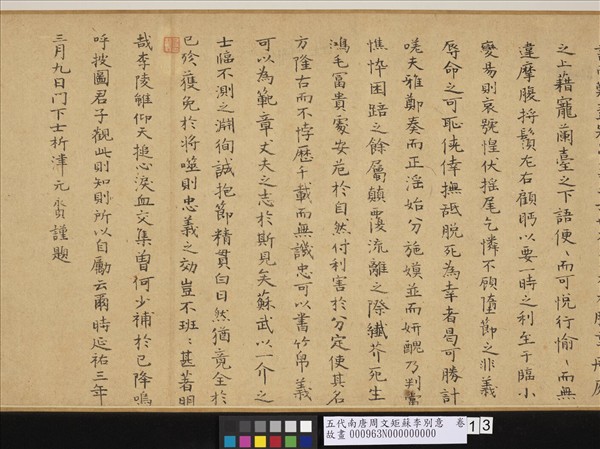 之上藉寵蘭臺之下語便〻而可悅行愉〻而無
違摩腹捋鬚左右顧眄以要一時之利至于臨小
變易則哀號惶伏搖尾乞憐不顧墮節之非義
辱命之可恥俠倖撫詆脫死為幸者曷可勝計
嗟夫雅鄭奏而正淫始分施嫫並而妍醜乃判繄
憔悴困踣之餘屬顛覆流離之際纖芥死生
鴻毛冨貴寘安危於自然付利害於分定使其名
方隆古而不悖歷千載而無譏忠可以書竹帛義
可以為範章丈夫之志於斯見矣蘇武以一介之
士臨不測之淵徇誠抱節精貫白日然猶竟全於
已殄獲免於將噬則忠義之効豈不班〻甚著明
哉李陵雖仰天搥心淚血交集曽何少補於已降嗚
呼披圖君子觀此則知所以自勵云爾時延祐三年
三月九日門下士析津元賫謹題
五代南唐周文矩蘇李別意 卷
故畫 000963N000000000
13